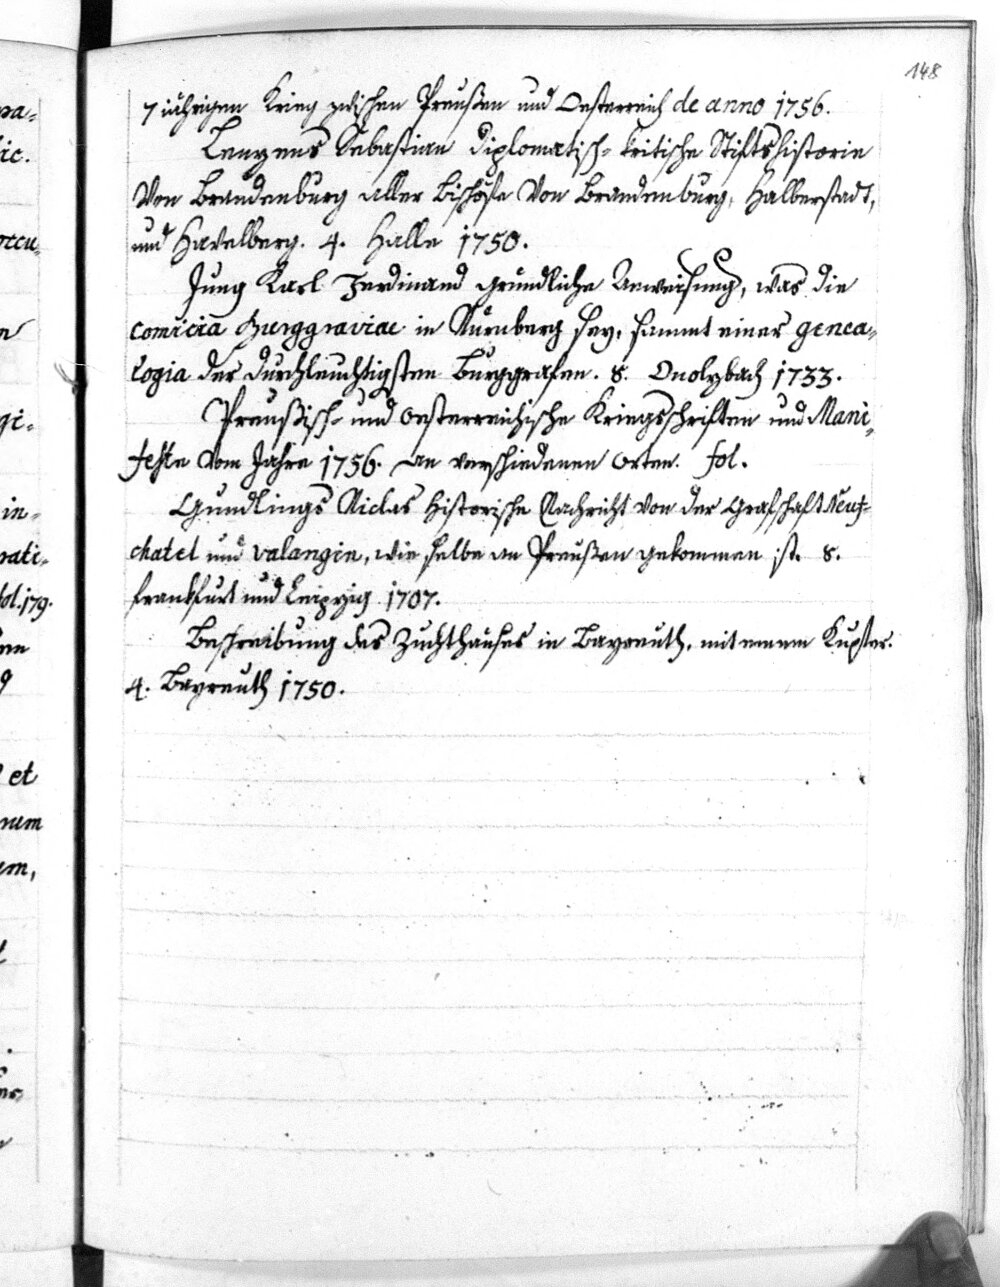 148
7 jährigen Krieg zwischen Preußen und Oesterreich de anno 1756.
Lenzens Sebastian diplomatisch-kritische Stiftshistorie
Von Brandenburg aller Bischöfe Von Brandenburg, Halberstadt,
und Havelberg. 4. Halle 1750.
Jung Karl Ferdinand gründliche Anweisung, was die
comicia Burggraviae in Nürnberg sey, sammt einer genea-
logia der durchleuchtigsten Burggrafen. 8. Onolzbach 1733.
Preußisch- und Oesterreichische Kriegsschriften und Mani-
feste vom Jahre 1756. an verschiedenen Orten. fol.
Gundlings Niclas historische Nachricht von der Grafschaft Neuf-
chatel und Valangin, wie selbe an Preußen gekommen ist. 8.
Frankfurt und Leipzig 1707.
Beschreibung des Zuchthauses in Bayreuth, mit einem Kupfer.
4. Bayreuth 1750.
pa-
ic.
occu-
n
gi-
in-
rati-
fol. 179.
et
num
em,